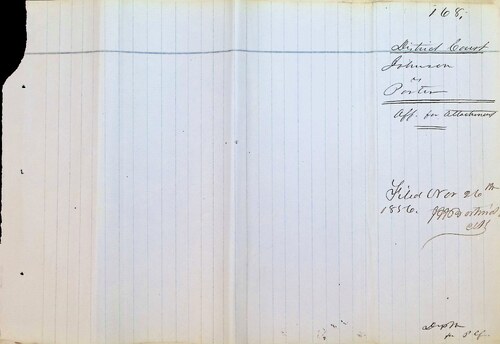 168.
District Court
Johnson
vs
Porter
Aff. for Attachment
Filed Nov 26th
1856.
Clk